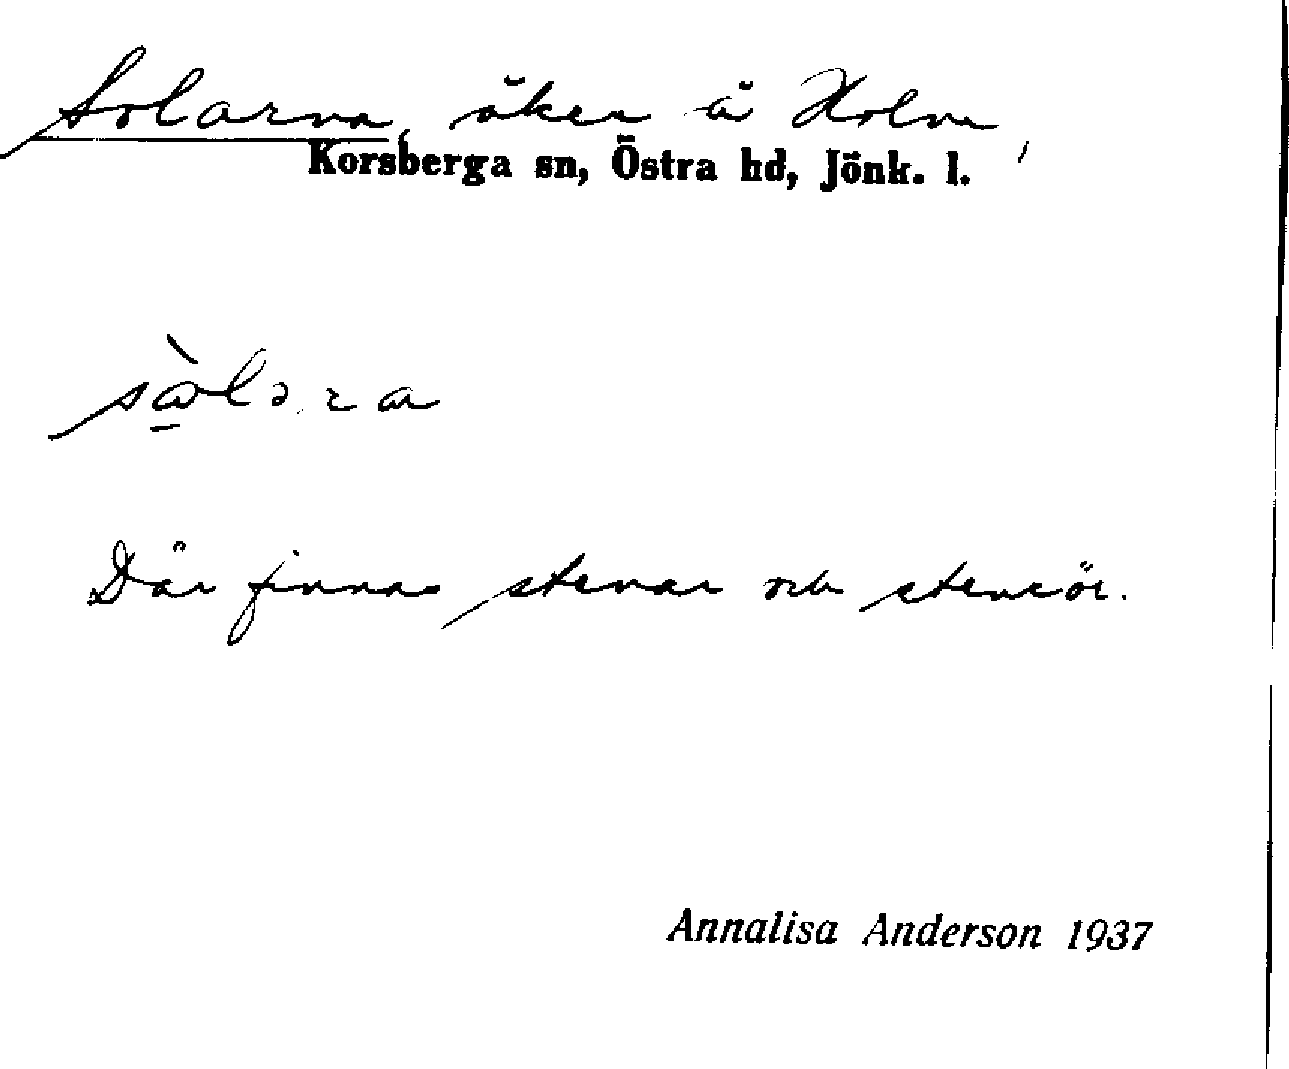 Solarna, åker å Holm
Korsberga sn, Östra hd, Jönk. l.
Där finnas stenar och stenrör.
Annalisa Anderson 1937